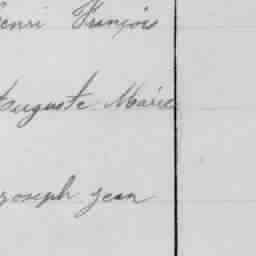 Henri François
Auguste Marie
Joseph Jean